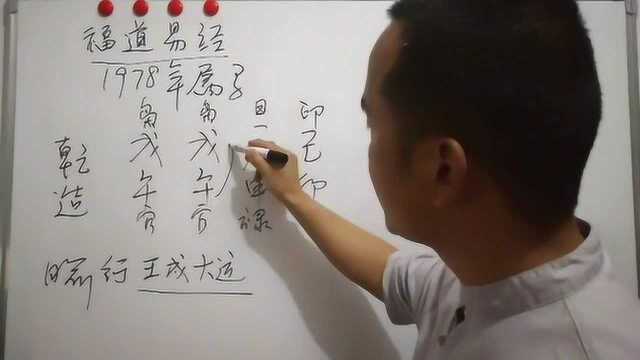 福道易经
1978年属马
枭 枭 日 印
戊 戊 己
乾造 午 午 卯
官 官 禄
目前行壬戌大运